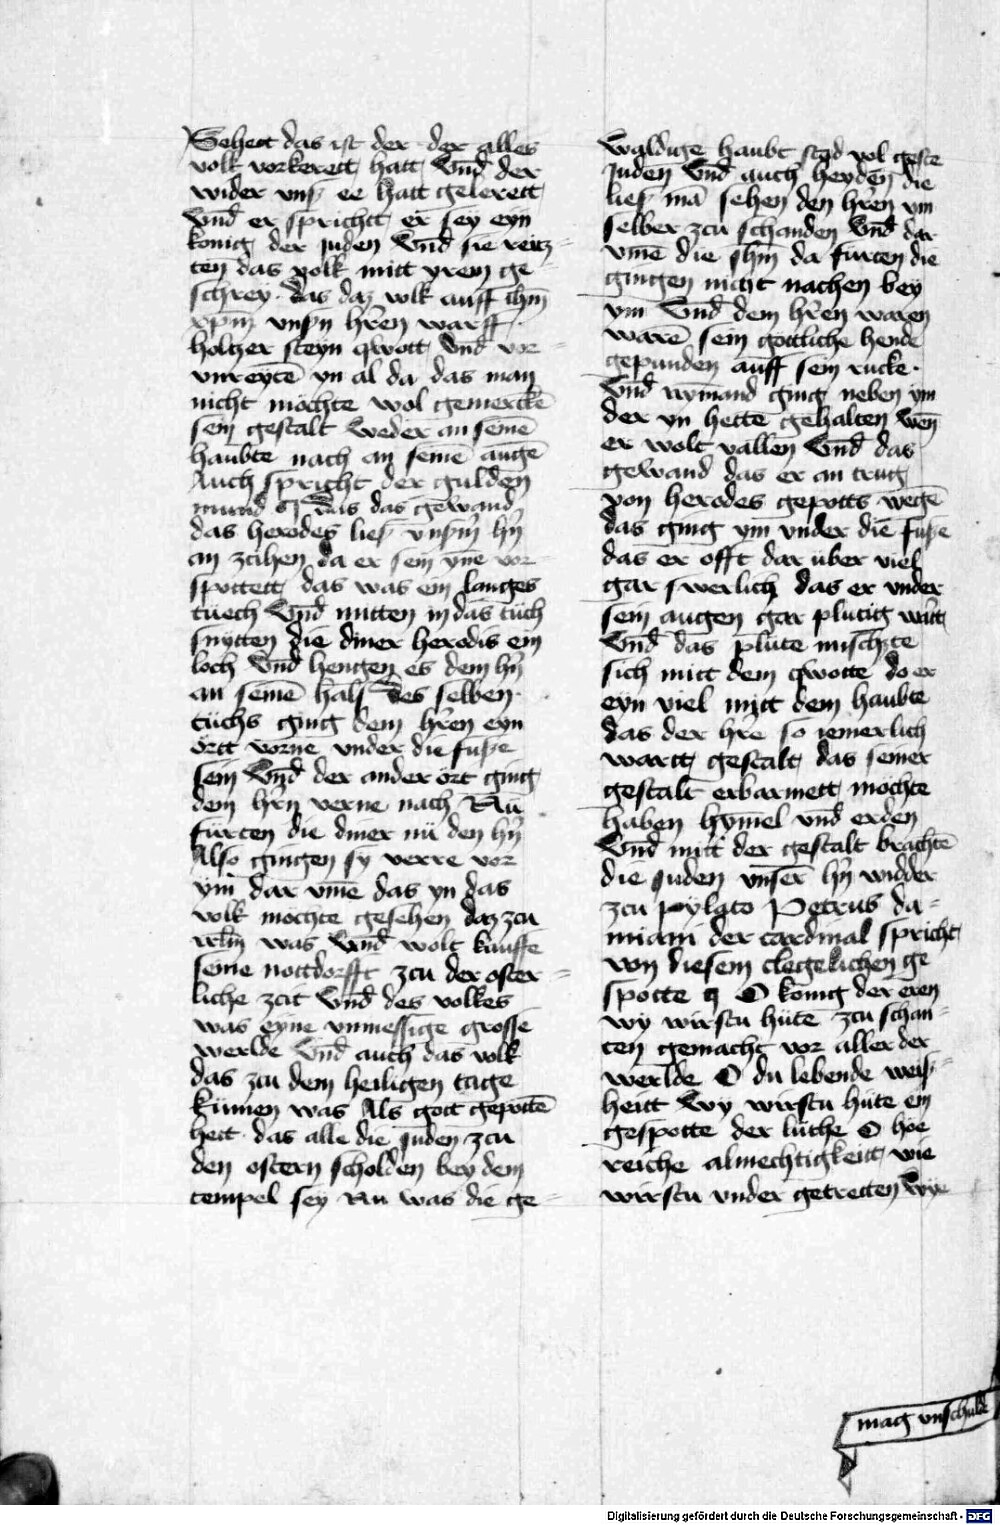 Sehett das ist der der alles
volk vorkerett hatt Vnd der
wider vnß ee hatt gelerett
Vnd er sprichtt er sey eyn
konig der Juden Vnd sie reitz=
ten das volk mitt yrem ge=
schrey das daz volk auff ihm̄
xp̄m vnsn̄ hr̄en warff
holtzer steyn qwott Vnd vor=
vnreytē yn al da das man
nicht mochte wol gemerckē
sein gestalt Weder an seinē
haubte nach an seinē augē
Auch spricht der guldēn
mund das gewand
das herodes ließ vnsm̄ hn̄
an zcihen da er sein yne vor=
spottett das was ein langes
tuech Vnd mitten in das tuch
snytten die diner herodis ein
loch Vnd hengen es dem hn̄
an seinē hals des selben
tuchs ging dem hr̄en eyn
ortt vorne vnder die fusse
sein Vnd der ander ort ging
dem hr̄n verne nach Nū
furten die diner nu den hn̄
Also gingen sy verre vor
ym dar vmē das yn das
volk mochte gesehen daz zcu
irlm̄ was Vnd wolt kauffe
seine nottdorfft zcu der oster=
liche zcit Vnd des volkes
was eyne vnmessige grosse
werlde Vnd auch das volk
das zcu dem heiligen tage
kumen was Als gott gepottē
hett das alle die Juden zcu
den ostern scholden bey dem
tempel sey Nu was die ge=
waldige haubt stad vol geste
Juden Vnd auch heyden die
ließ mā sehen den hr̄en ym
selber zcu schanden Vnd dar
vmē die ihm̄ da furten die
gingen nicht nachen bey
ym Vnd dem hr̄en waren
warē sein gottliche hende
gepunden auff sein rucke
Vnd nymand ging neben ym
der yn hette gehalten wen̄
er wolt vallen Vnd das
gewand das er an trug
von herodes gepotts wegē
das ging ym vnder die fusse
das er offt dar uber viel
gar swerlich das er vnder
sein augen gar plutig wart
Vnd das plute mischte
sich mitt dem qwotte do er
eyn viel mitt dem haubte
das der hr̄e so iemerlich
wartt gestalt das seiner
gestalt erbarmett mochte
haben hymel vnd erden
Vnd mitt der gestalt brachtē
die Juden vnser hn̄ widder
zcu pylato Petrus da=
miani der cardinal spricht
von diesem clegelichen ge
spotte O konig der eren
wy wirstu hutē zcu schan=
ten gemacht vor aller der
werlde O du lebende weiß=
heitt Wy wirstu hute ein
gespotte der luthe O hoe
reiche almechtigkeitt wie
wirstu vnder getretten Wye
mag vnschulde
Digitalisierung gefördert durch die Deutsche Forschungsgemeinschaft - DFG